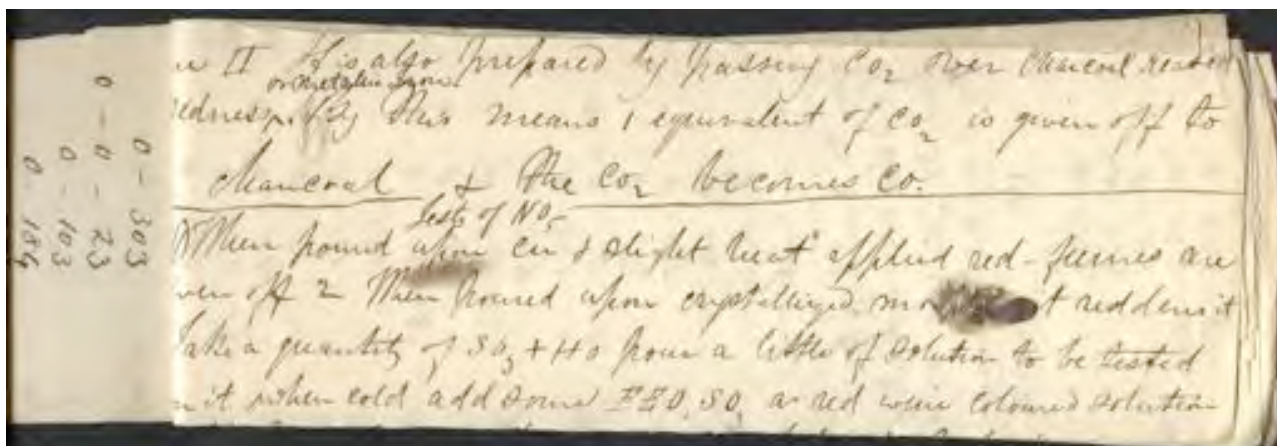 0 - 303
0 - 0 - 23
0 - 103
0 - 184
II It is also prepared by passing Co₂ over charcoal
or metallic iron
redness, by this means 1 equivalent of Co₂ is given off to
charcoal & the Co₂ becomes Co.
Tests of NO₅
When poured upon Cu & slight heat applied red-fumes are
ven off 2 When poured upon crystallized t reddens it
Take a quantity of SO₃ + HO pour a little of solution to be tested
it when cold add some FEO, SO₃ a red wine coloured solution